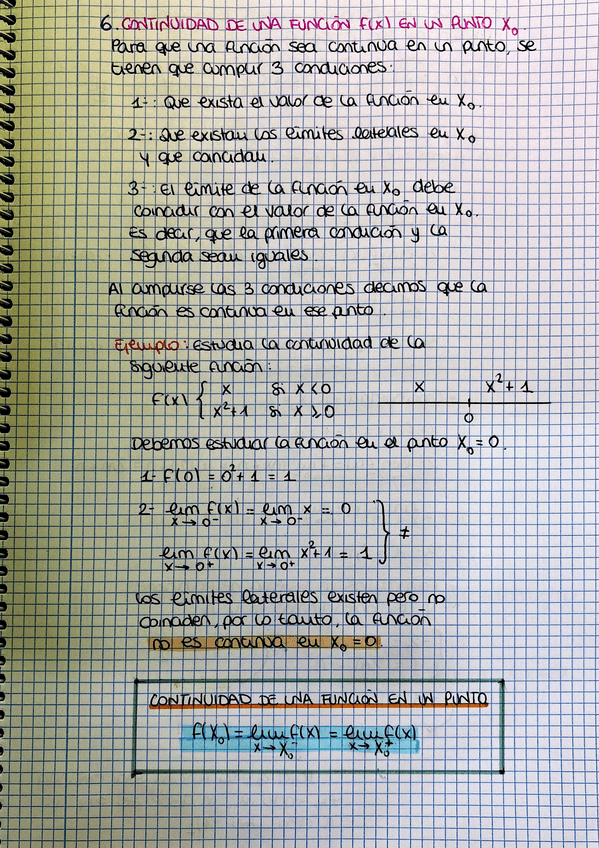 6. CONTINUIDAD DE UNA FUNCIÓN f(x) EN UN PUNTO X₀.
Para que una función sea continua en un punto, se
tienen que cumplir 3 condiciones:
1-: Que exista el valor de la función en X₀.
2-: Que existan los límites laterales en X₀
y que coincidan.
3-: El límite de la función en X₀ debe
coincidir con el valor de la función en X₀.
Es decir, que la primera condición y la
segunda sean iguales.
Al cumplirse las 3 condiciones decimos que la
función es continua en ese punto.
Ejemplo: Estudia la continuidad de la
siguiente función:
f(x) { x si x < 0
x²+1 si x ≥ 0
x x²+1
0
Debemos estudiar la función en el punto X₀ = 0.
1- f(0) = 0²+1 = 1
2- lim f(x) = lim x = 0
x→0⁻ x→0⁻
} ≠
lim f(x) = lim x²+1 = 1
x→0⁺ x→0⁺
Los límites laterales existen pero no
coinciden, por lo tanto, la función
no es continua en X₀ = 0.
CONTINUIDAD DE UNA FUNCIÓN EN UN PUNTO
f(X₀) = lim f(x) = lim f(x)
x→X₀⁻ x→X₀⁺